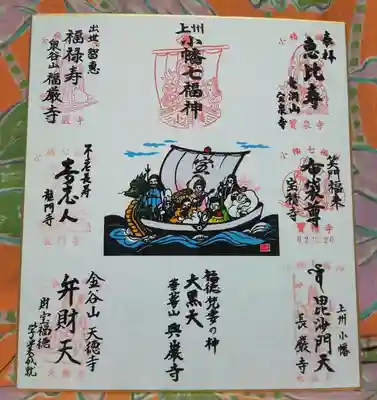 奉拝
恵比寿
宝泉寺
上州
小幡七福神
出世 智恵
福禄寿
泉谷山 福厳寺
笑門福来
布袋尊
宝積寺
不老長寿
寿老人
龍門寺
宝
上州 小幡
毘沙門天
長厳寺
大黒天
興巌寺
金谷山 天徳寺
弁財天
財宝福徳
学業成就